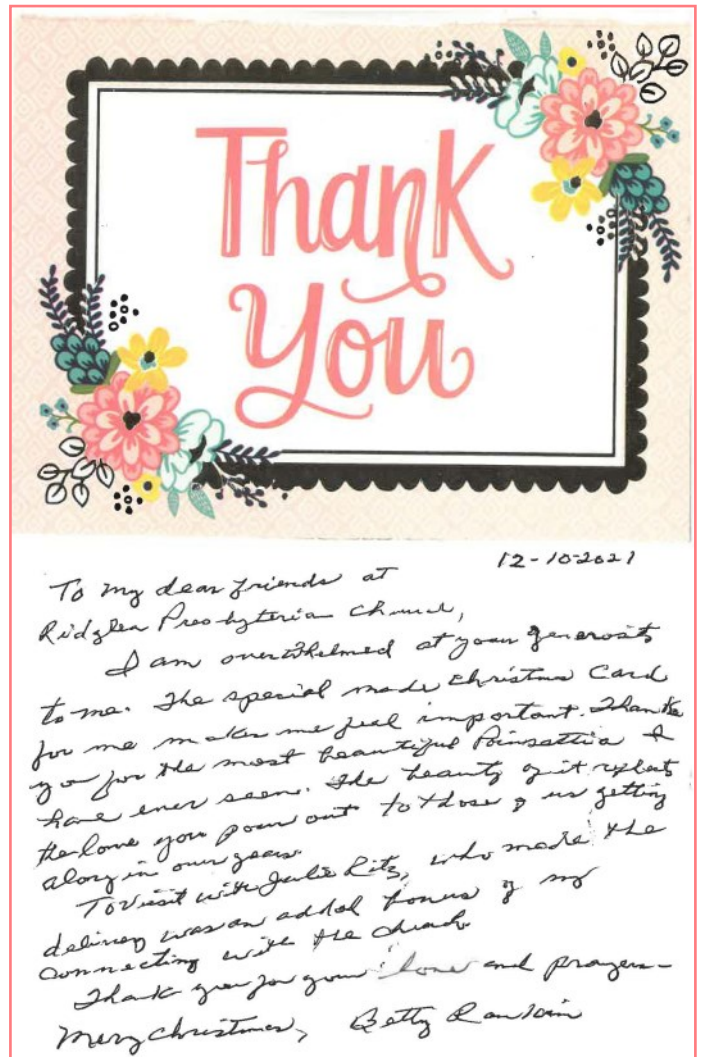 Thank
You
12-10-2021
To my dear friends at
Ridglea Presbyterian Church,
I am overwhelmed at your generosity
to me. The special made Christmas Card
for me makes me feel important. Thank
you for the most beautiful Poinsettia I
have ever seen. The beauty of it reflects
the love you pour out to those of us getting
along in our years.
To visit with Julie Ritz, who made the
delivery was an added bonus of my
connecting with the church.
Thank you for your love and prayers—
Merry Christmas, Betty